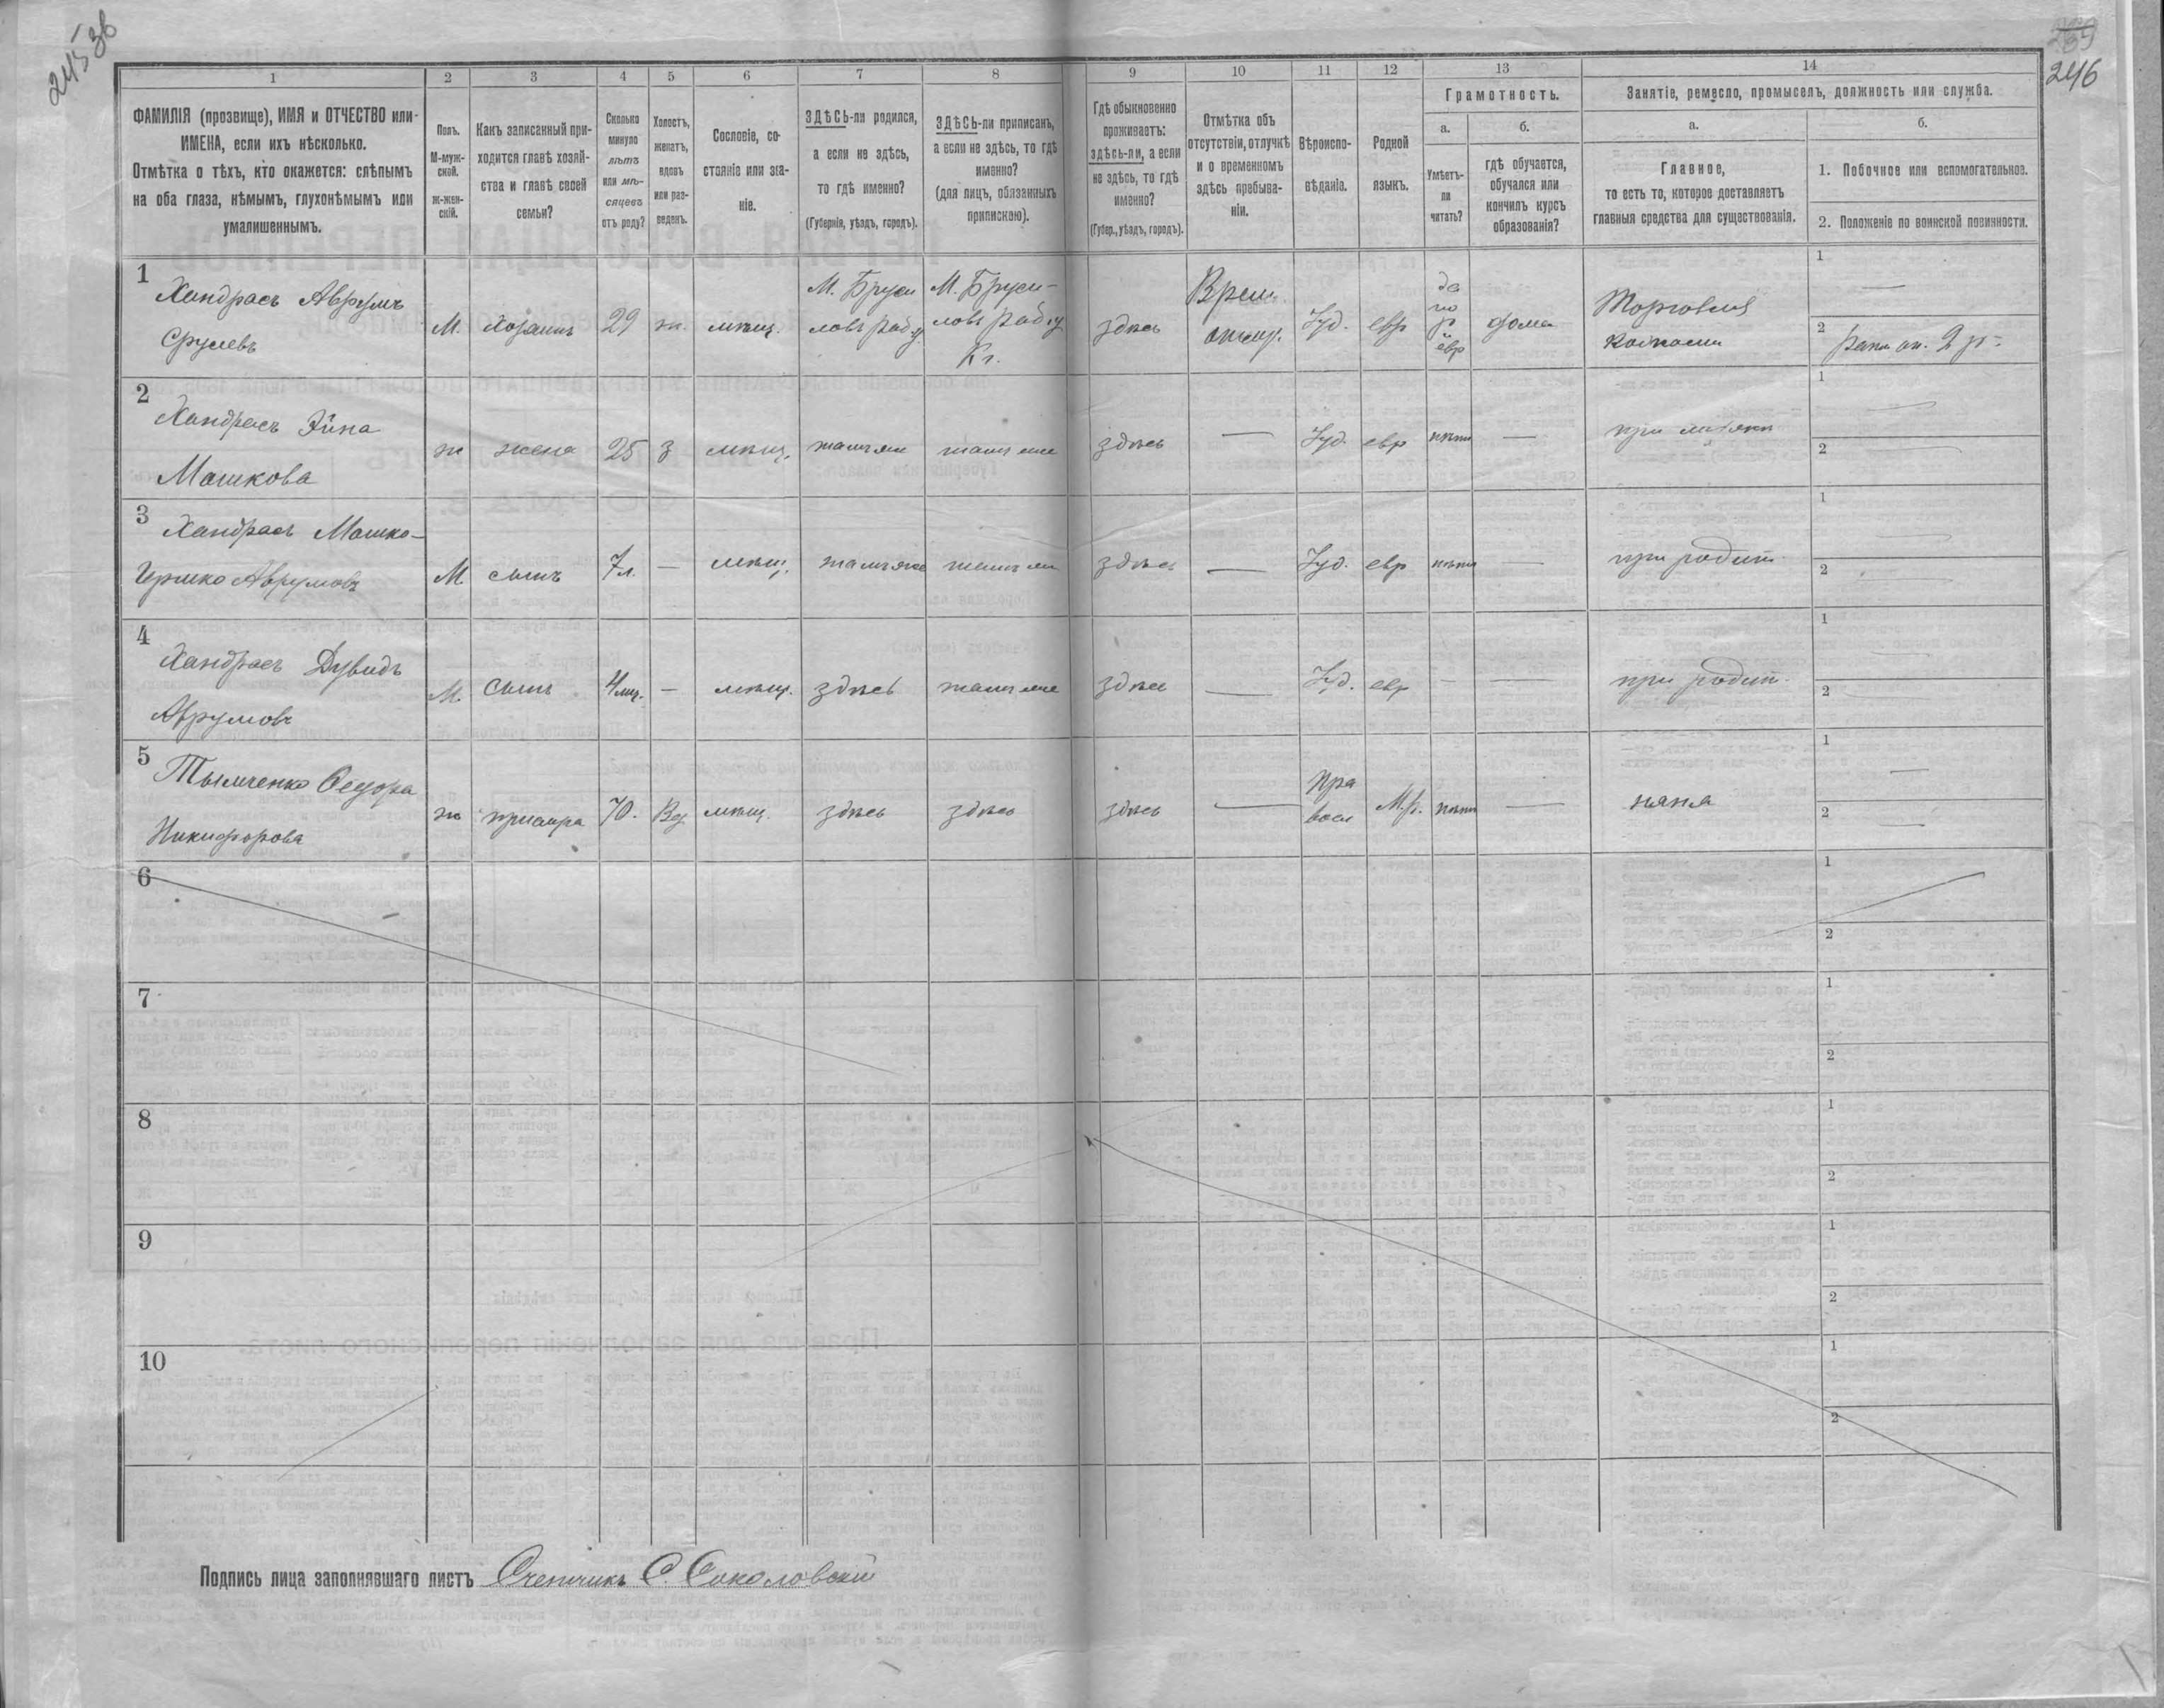 245 зв
239
246
1
2
3
4
5
6
7
8
9
10
11
12
13
14
ФАМИЛІЯ (прозвище), ИМЯ и ОТЧЕСТВО или
ИМЕНА, если ихъ нѣсколько.
Отмѣтка о тѣхъ, кто окажется: слѣпымъ
на оба глаза, нѣмымъ, глухонѣмымъ или
умалишеннымъ.
Полъ.
М-муж-
ской.
ж-жен-
скій.
Какъ записанный при-
ходится главѣ хозяй-
ства и главѣ своей
семьи?
Сколько
минуло
лѣтъ
или мѣ-
сяцевъ
отъ роду?
Холостъ,
женатъ,
вдовъ
или раз-
веденъ.
Сословіе, со-
стояніе или зва-
ніе.
ЗДѢСЬ-ли родился,
а если не здѣсь,
то гдѣ именно?
(Губернія, уѣздъ, городъ).
ЗДѢСЬ-ли приписанъ,
а если не здѣсь, то гдѣ
именно?
(для лицъ, обязанныхъ
припискою).
Гдѣ обыкновенно
проживаетъ:
здѣсь-ли, а если
не здѣсь, то гдѣ
именно?
(Губер., уѣздъ, городъ).
Отмѣтка объ
отсутствіи, отлучкѣ
и о временномъ
здѣсь пребыва-
ніи.
Вѣроиспо-
вѣданіе.
Родной
языкъ.
Грамотность.
а.
Умѣетъ-
ли
читать?
б.
гдѣ обучается,
обучался или
кончилъ курсъ
образованія?
Занятіе, ремесло, промыселъ, должность или служба.
а.
Главное,
то есть то, которое доставляетъ
главныя средства для существованія.
б.
1. Побочное или вспомогательное.
2. Положеніе по воинской повинности.
1 Хандрасъ Аврумъ
Срулевъ
М. Хозяинъ 29 ж. мѣщ.
М. Бруси
ловъ Рад. у.
М. Бруси-
ловъ Рад. у
Кг.
здѣсь
Врем.
отлуч.
Іуд. евр
да
по
р
и
евр
дома
Торговля
1 —
2
2 Хандрасъ Эйна
Мошкова
ж жена 25 з мѣщ. тамъ же тамъ же здѣсь — Іуд. евр нѣтъ —
1 —
2 —
3 Хандрасъ Мошко-
Ершко Аврумовъ
М сынъ 7 л. — мѣщ. тамъ же тамъ же здѣсь — Іуд. евр нѣтъ — при родит.
1 —
2 —
4 Хандрасъ Дувидъ
Аврумовъ
М. сынъ 4 мц. — мѣщ. здѣсь тамъ же здѣсь — Іуд. евр — — при родит.
1 —
2 —
5 Тымченко Ѳедора
Никифорова
ж прислуга 70. Вд. мѣщ. здѣсь здѣсь здѣсь —
Пра
восл
М.р. нѣтъ — няня
1 —
2 —
6
1
2
7
1
2
8
1
2
9
1
2
10
1
2
Подпись лица заполнявшаго листъ Счетчикъ С. Соколовскій